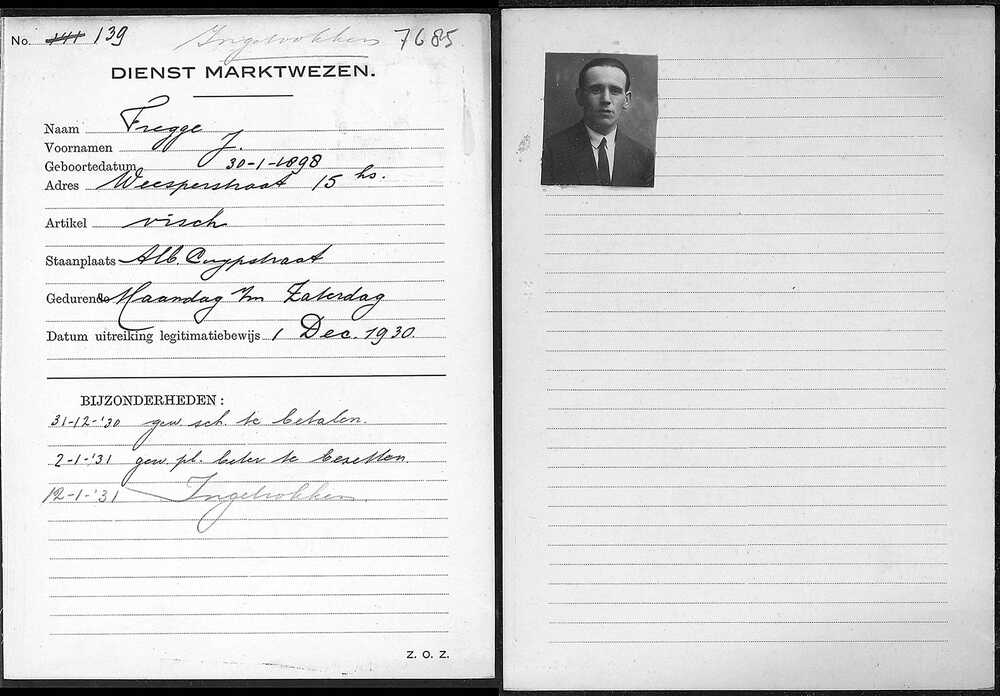 No. 141 139 Ingetrokken 7685
DIENST MARKTWEZEN.
Naam Fregge
Voornamen J.
Geboortedatum 30-1-1898
Adres Weesperstraat 15 hs.
Artikel visch
Staanplaats Alb. Cuypstraat
Gedurende Maandag t/m Zaterdag
Datum uitreiking legitimatiebewijs 1 Dec. 1930.
BIJZONDERHEDEN:
31-12-'30 gew. sch. te betalen.
2-1-'31 gew. pl. beter te bezetten.
12-1-'31 Ingetrokken.
Z. O. Z.